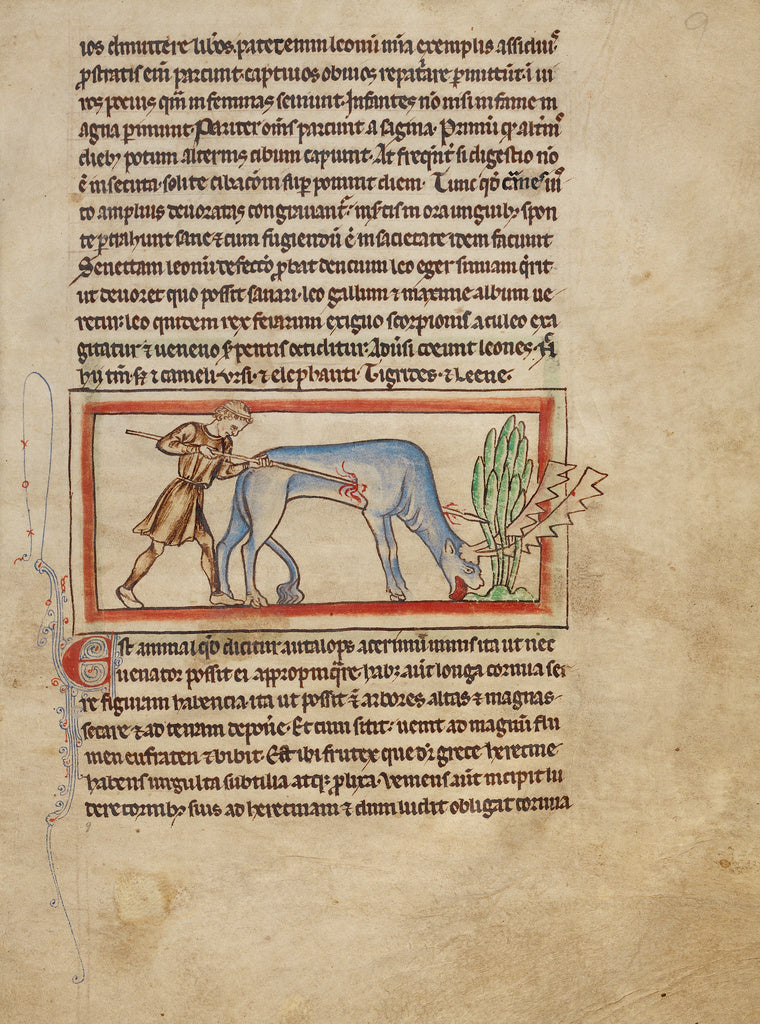 ios dimittere libros. patet enim leonum mīa exemplis assiduis.
prostratis enī parcunt. captiuos obuios repatriare permittunt. in ui
ros pocius qm̄ in feminas seuiunt. Infantes nō nisi in fame m
agna perimunt. Pariter om̄s parcunt a sagina. Primū q̄ altnis
dieb; potum alternis cibum capiunt. At freq̄nt̄ si digestio nō
ē insecuta. solite cibacōni sup ponunt diem. Tunc qd̄ carnes iu
to amplius deuoratas cum grauant̄. insertis in ora unguib; spon
te ptrahunt sane ⁊ cum fugiendū ē in sacietate idem faciunt
Senectam leonū defectō probat dencium leo eger simiam q̄rit
ut deuoret quo possit sanari. leo gallum ⁊ maxime album ue
retur. leo quidem rex ferarum exiguo scorpionis aculeo exa
gitatur ⁊ ueneno s̄pentis occiditur. Adūsi coeunt leones.
hij tm̄. s; ⁊ cameli. ursi. ⁊ elephanti. Tigrides. ⁊ leene.
Est animal qd̄ dicitur autalops acerimum nimis ita ut nec
uenator possit ei appropinq̄re. habz aūt longa cornua ser
re figuram habencia. ita ut possit ē arbores altas ⁊ magnas
secare ⁊ ad terram depone. Et cum sitit. uenit ad magnū flu
men eufraten ⁊ bibit. Est ibi frutex que dr̄ grece herecine
habens uirgulta subtilia atq; prolixa. Veniens aūt incipit lu
dere cornib; suis ad herecinam ⁊ dum ludit obligat cornua
9